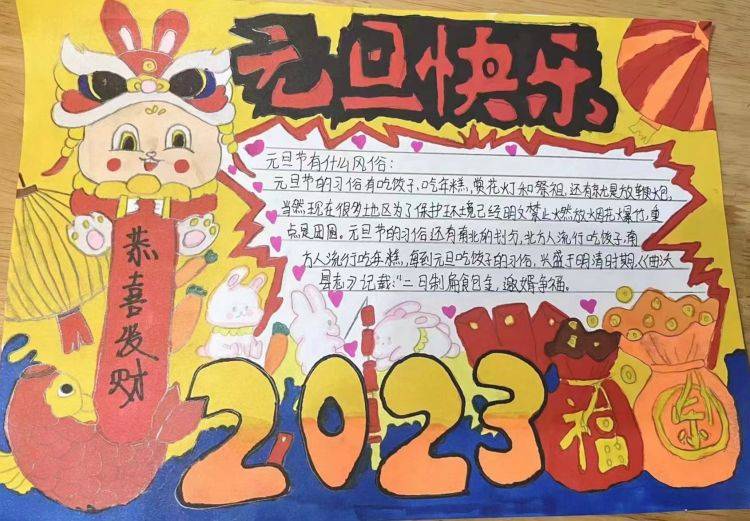 元旦快乐
元旦节有什么风俗:
元旦节的习俗有吃饺子,吃年糕,赏花灯和祭祖,还有就是放鞭炮,
当然现在很多地区为了保护环境已经明文禁止燃放烟花爆竹,重
点是团圆。元旦节的习俗还有南北的划分,北方人流行吃饺子,南
方人流行吃年糕,每到元旦吃饺子的习俗,兴盛于明清时期,《曲沃
县志》记载:“二日制扁食包含,邀婿争福。
恭喜发财
2023
福